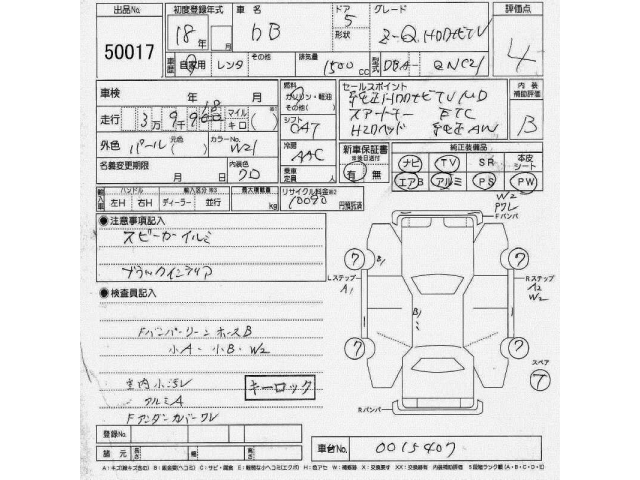 出品No. 初度登録年式 車名 ドア グレード 評価点
50017 18年 月 bB 5 形状 Z-Q HDDナビTV 4
車歴 自家用 レンタ その他 排気量 1500cc 型式 DBA- QNC21
車検 年 月 燃料 ガソリン・軽油 その他( ) セールスポイント 内装補助評価
走行 3万 9千 マイル キロ ( ) シフト 純正HDDナビTV MD B
外色 パール 元色 ( ) カラーNo. W21 冷房 AAC スマートキー ETC
HIDヘッド 純正AW
名義変更期限 月 日 内装色 クロ 乗車定員 人 新車保証書 有 無 純正装備品
ナビ TV SR 本皮シート
エアB アルミ PS PW
輸入車 ハンドル 左H 右H 輸入区分 ディーラー 並行 最大積載量 kg リサイクル料金 10090 円預託済
●注意事項記入
スピーカーイルミ
ブラックインテリア
W2
Fバンパ
7 7
Lステップ A1
Rステップ A2 W2
●検査員記入
FバンパーリーンホースB
小A・小B・W2
室内小汚レ キーロック
アルミA
Fアンダーカバーワレ
7 7
スペア 7
Rバンパ
登録No.
諸元 長さ 幅 高さ 車台No. 0015407